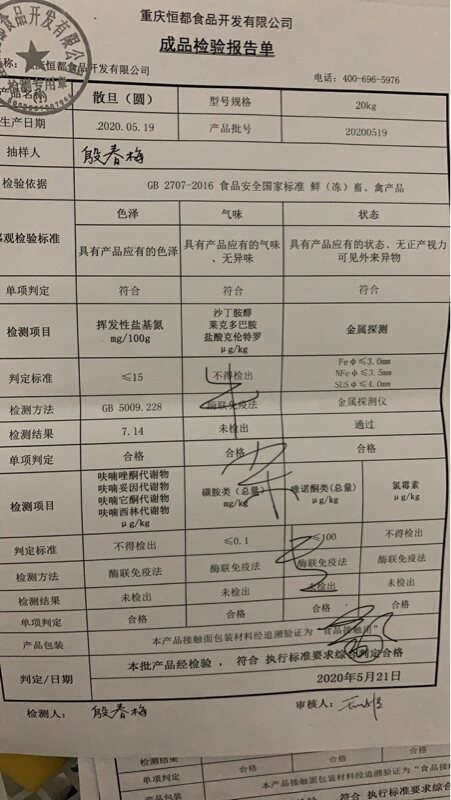 重庆恒都食品开发有限公司
成品检验报告单
称: 重庆恒都食品开发有限公司 电话: 400-696-5976
食品开发有限公司
检测专用章
产品名称 散旦（圆） 型号规格 20kg
生产日期 2020.05.19 产品批号 20200519
抽样人 殷春梅
检验依据 GB 2707-2016 食品安全国家标准 鲜（冻）畜、禽产品
观检验标准 色泽 气味 状态
具有产品应有的色泽 具有产品应有的气味、无异味 具有产品应有的状态、无正产视力可见外来异物
单项判定 符合 符合 符合
检测项目 挥发性盐基氮 mg/100g 沙丁胺醇 莱克多巴胺 盐酸克伦特罗 μg/kg 金属探测
判定标准 ≤15 不得检出 Feφ≤3.0mm NFeφ≤3.5mm SUSφ≤4.0mm
检测方法 GB 5009.228 酶联免疫法 金属探测仪
检测结果 7.14 未检出 通过
单项判定 合格 合格 合格
检测项目 呋喃唑酮代谢物 呋喃妥因代谢物 呋喃它酮代谢物 呋喃西林代谢物 μg/kg 磺胺类（总量） mg/kg 喹诺酮类(总量) μg/kg 氯霉素 μg/kg
判定标准 不得检出 ≤0.1 ≤100 不得检出
检测方法 酶联免疫法 酶联免疫法 酶联免疫法 酶联免疫法
检测结果 未检出 未检出 未检出 未检出
单项判定 合格 合格 合格 合格
产品包装 本产品接触面包装材料经追溯验证为“食品接触用”
判定/日期 本批产品经检验 ， 符合 执行标准要求综合判定合格
2020年5月21日
检测人: 殷春梅 审核人:
检测结果 合格 合格
单项判定 本产品接触面包装材料经追溯验证为“食品接
产品包装 本批产品经检验 ， 符合 执行标准要